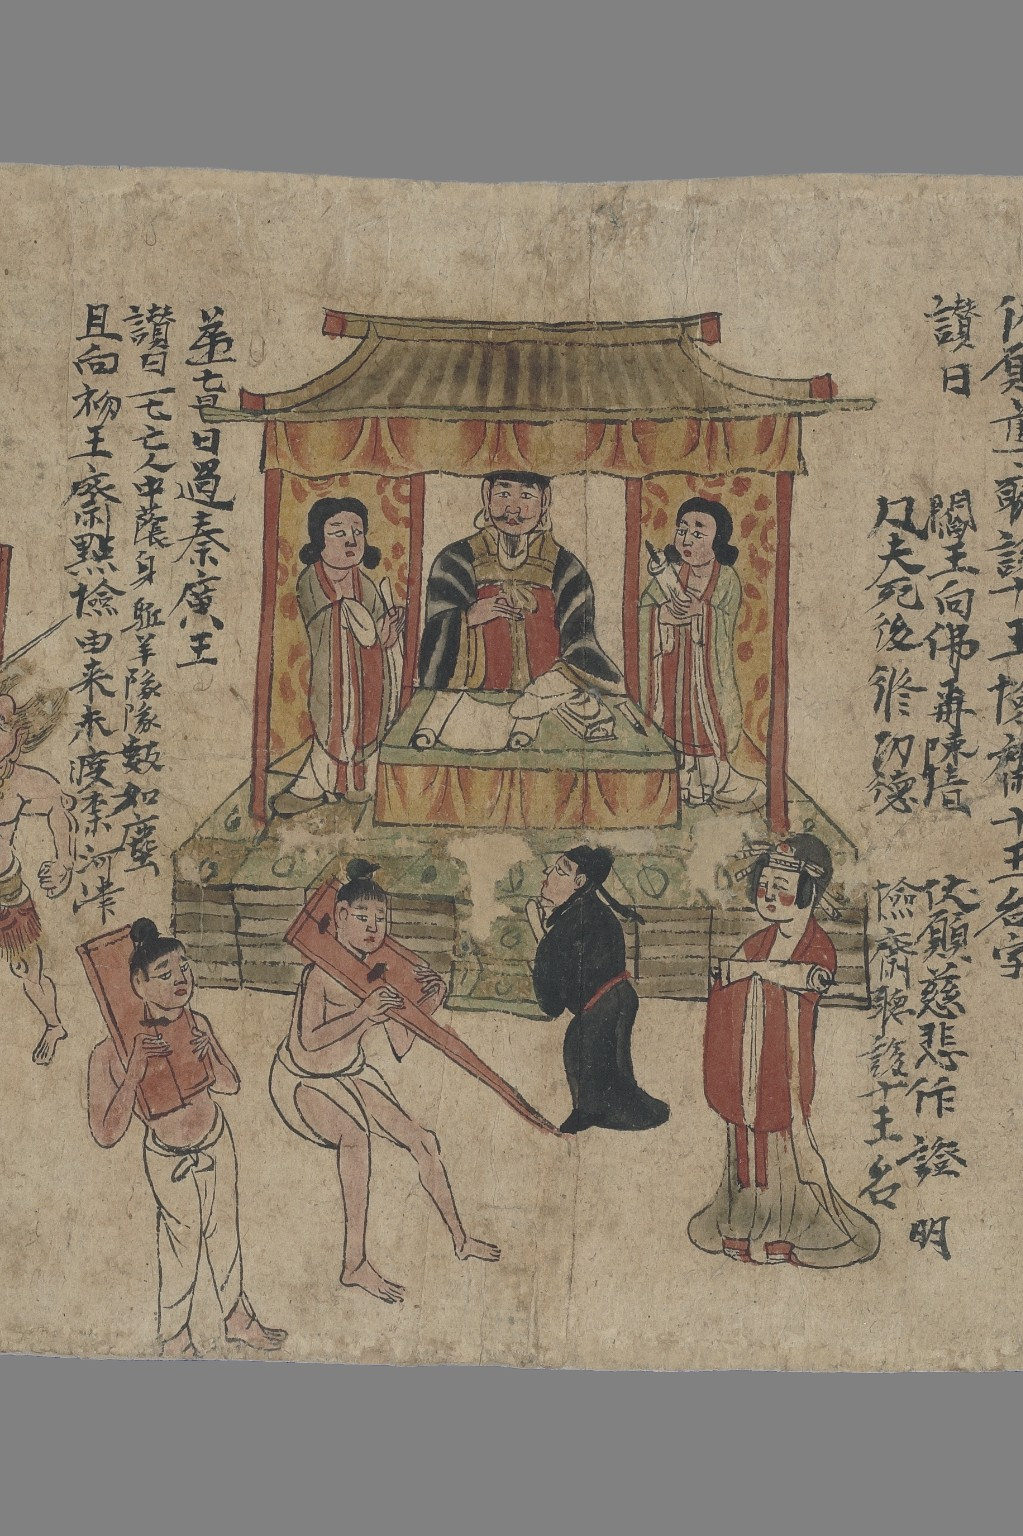 伏願聽說十王檢齋十王名字
讃曰
閻王向佛再陳情 伏願慈悲作證明
凡夫死後修功德 檢齋聽說十王名
苐一七日過秦廣王
讃曰一七亡人中蔭身驅羊隊隊數如塵
且向初王齋點檢由来未渡柰河津